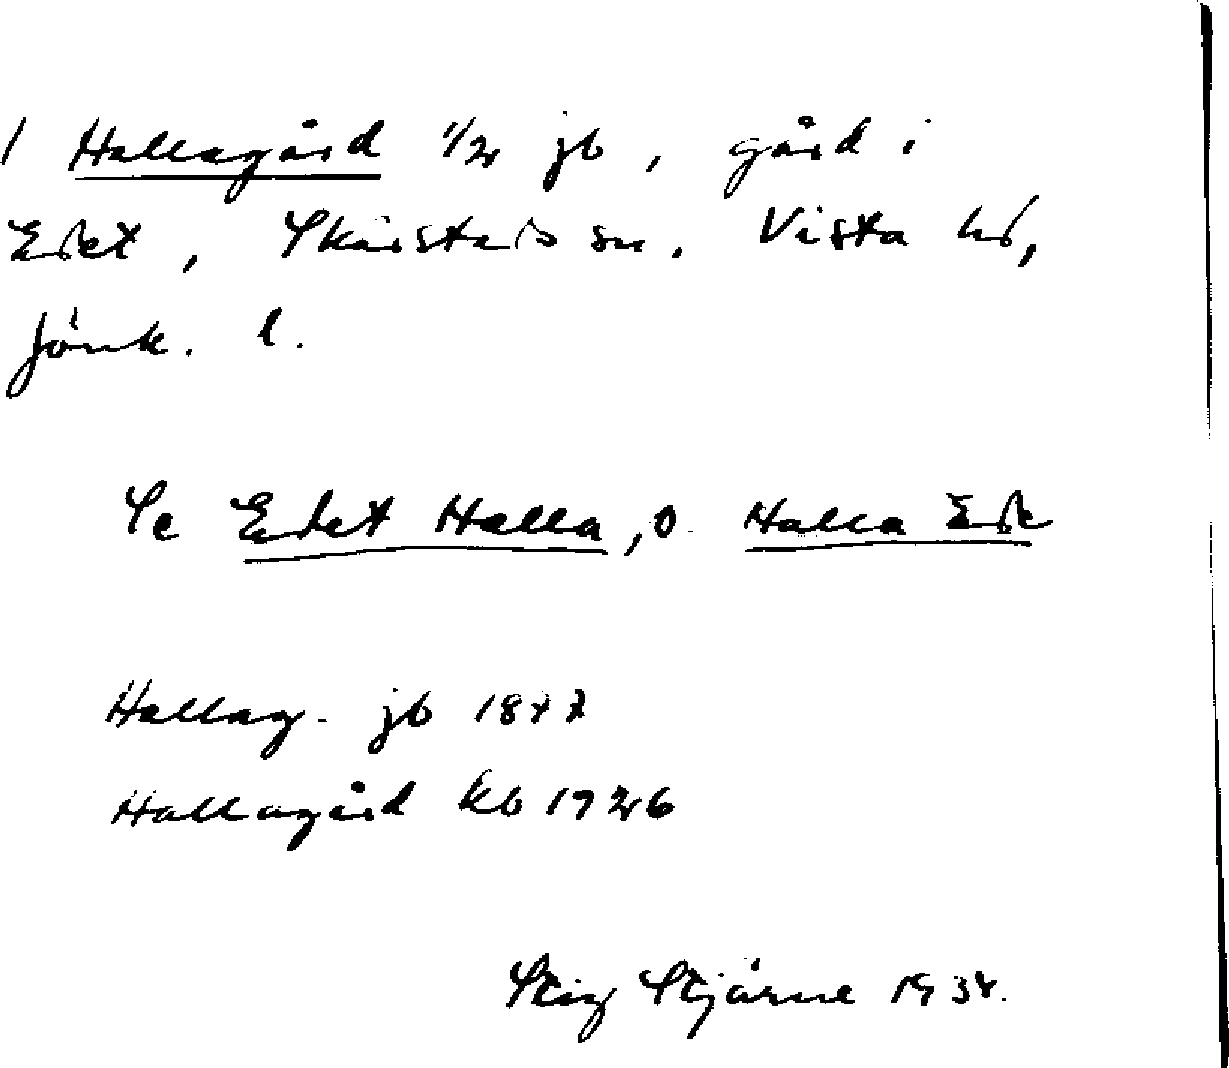 1 Hallagård 1/2 jb, gård i
Edet, Skärstads sn. Vista hd,
Jönk. l.
Se Edet Halla, o. Halla Ede
Hallag. jb 1877
Hallagård kb 1726
Stig Stjärne 1934.